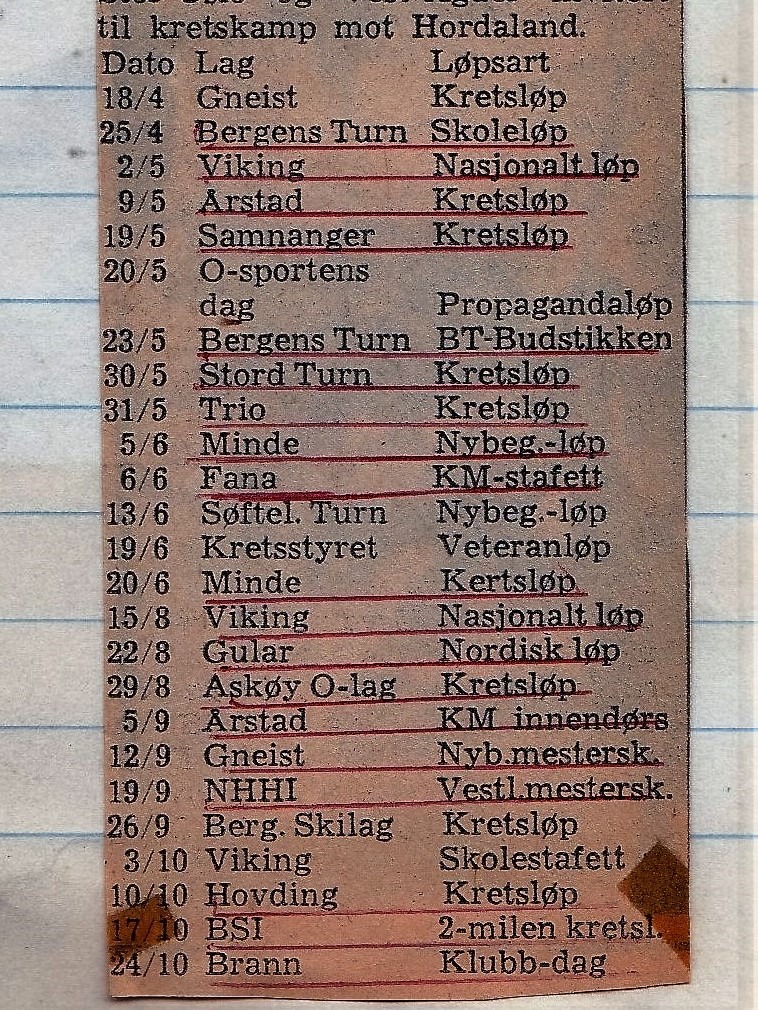 til kretskamp mot Hordaland.
Dato Lag Løpsart
18/4 Gneist Kretsløp
25/4 Bergens Turn Skoleløp
2/5 Viking Nasjonalt løp
9/5 Årstad Kretsløp
19/5 Samnanger Kretsløp
20/5 O-sportens
dag Propagandaløp
23/5 Bergens Turn BT-Budstikken
30/5 Stord Turn Kretsløp
31/5 Trio Kretsløp
5/6 Minde Nybeg.-løp
6/6 Fana KM-stafett
13/6 Søftel. Turn Nybeg.-løp
19/6 Kretsstyret Veteranløp
20/6 Minde Kertsløp
15/8 Viking Nasjonalt løp
22/8 Gular Nordisk løp
29/8 Askøy O-lag Kretsløp
5/9 Årstad KM innendørs
12/9 Gneist Nyb.mestersk.
19/9 NHHI Vestl.mestersk.
26/9 Berg. Skilag Kretsløp
3/10 Viking Skolestafett
10/10 Hovding Kretsløp
17/10 BSI 2-milen kretsl.
24/10 Brann Klubb-dag